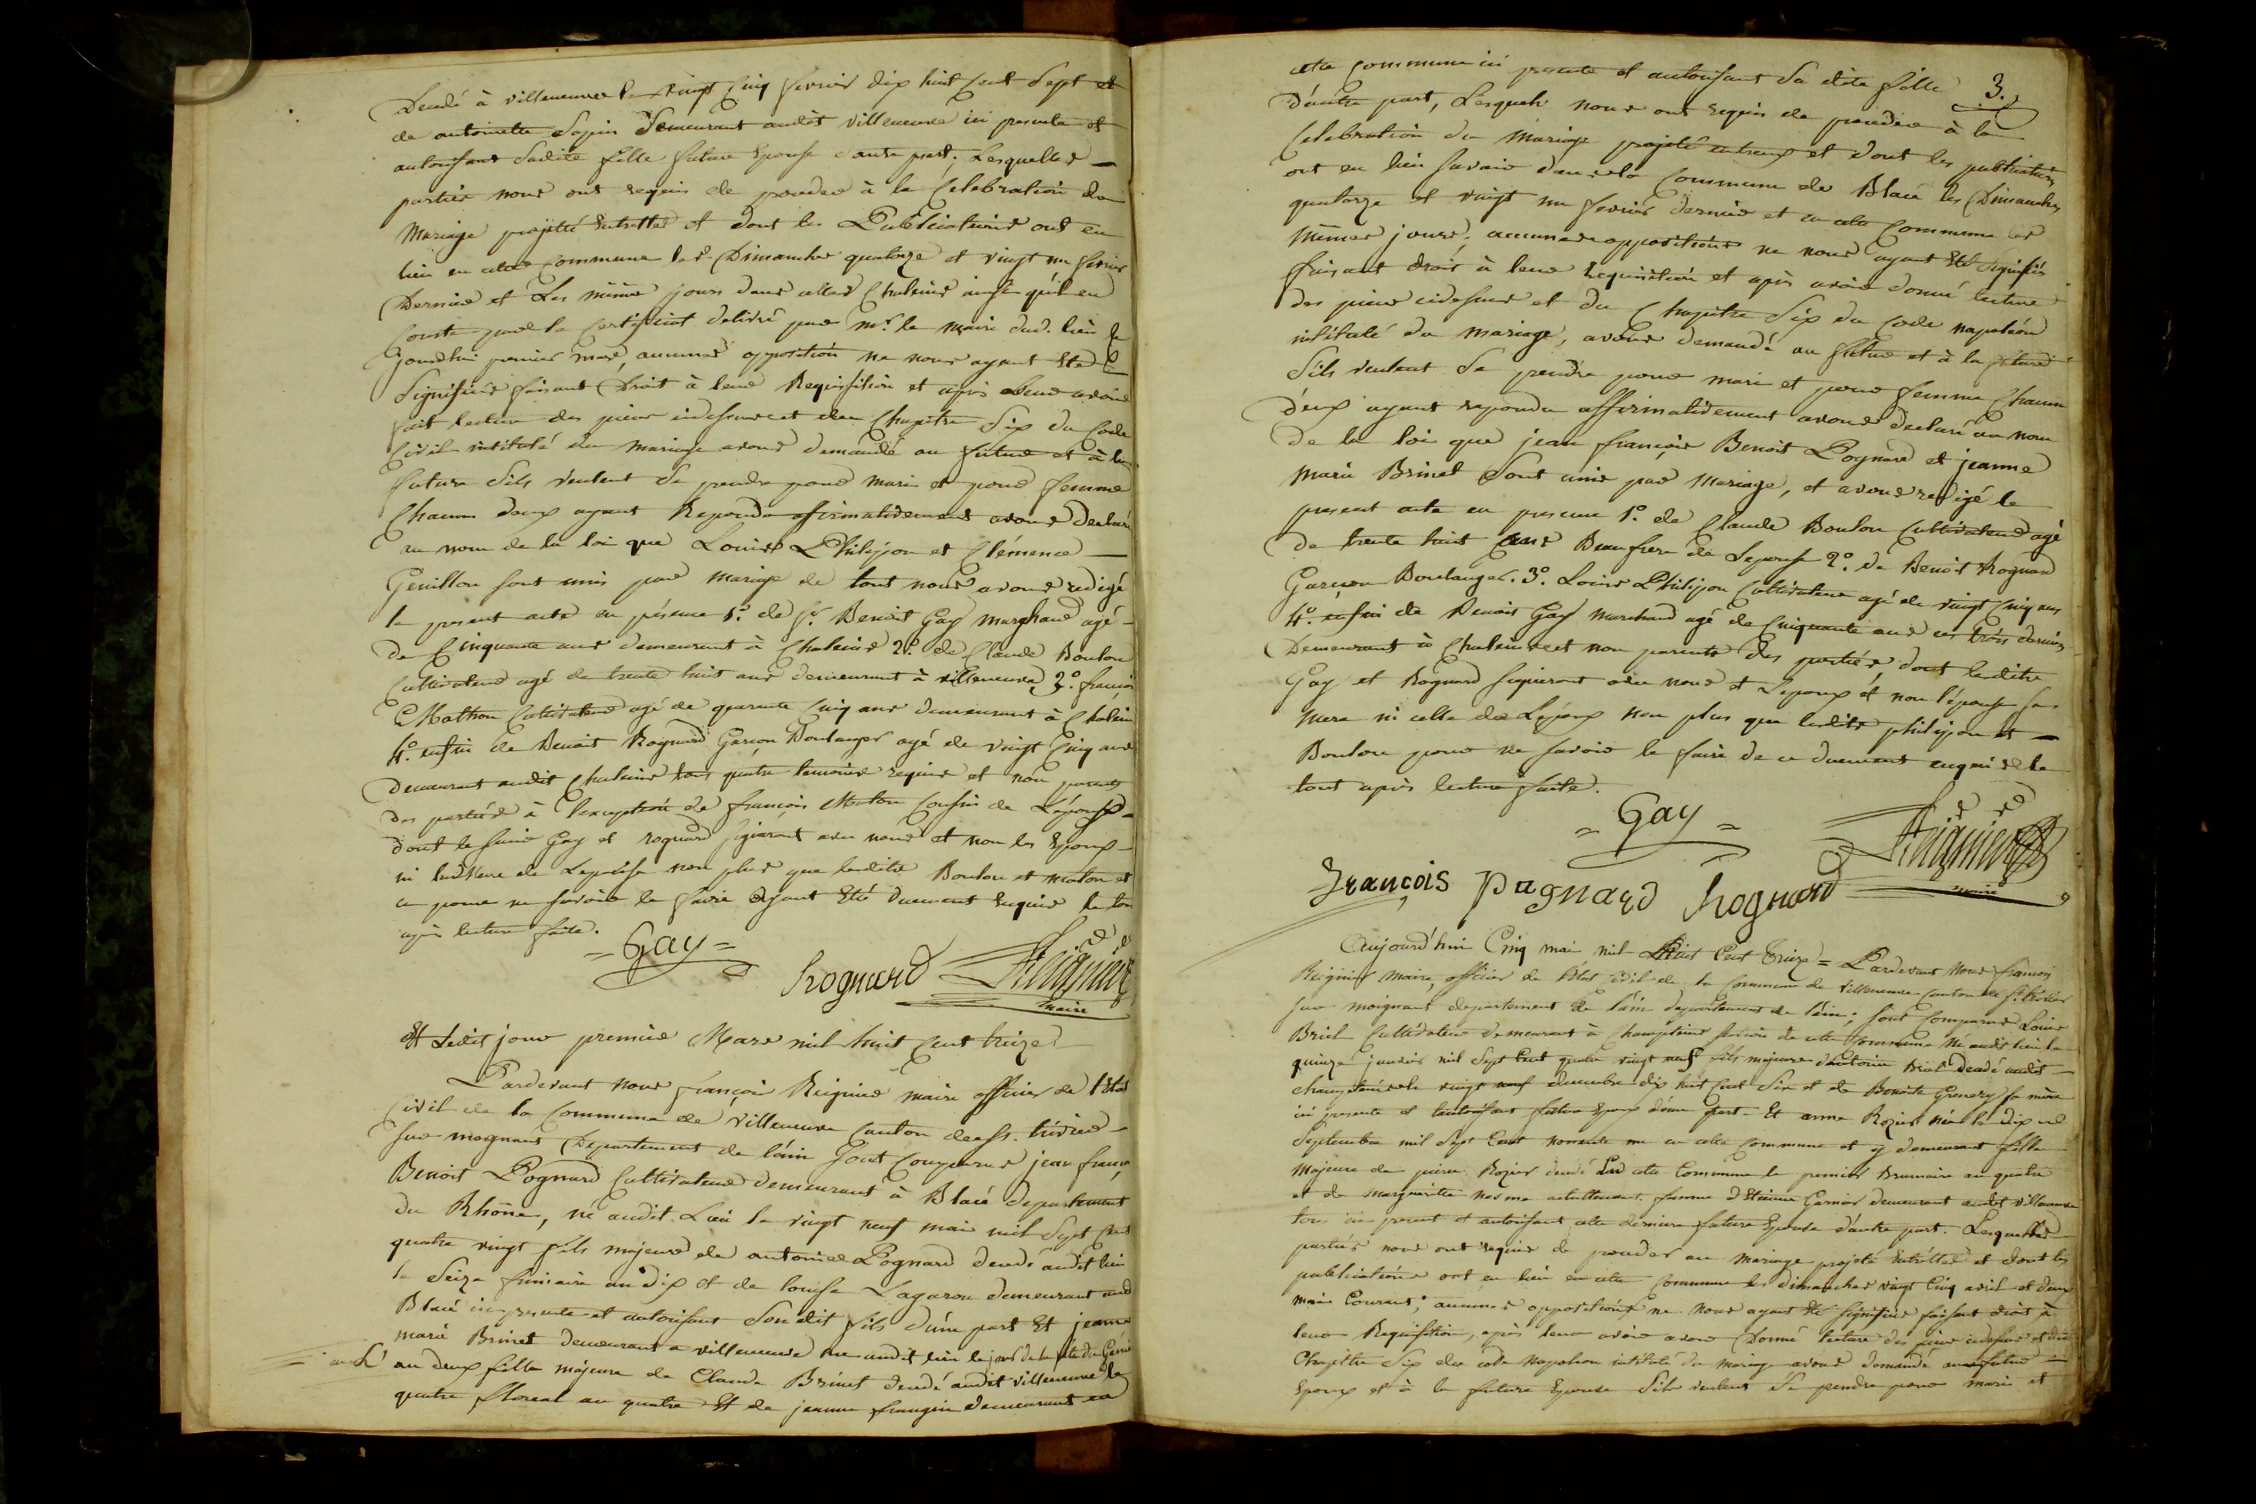 Decedé à villeneuve le vingt Cinq fevrier dix huit Cent Sept et
de antoinette Sapin demeurant audit villeneuve ici presente et
autorisant Sadite fille future Epouse d'autre part. Lesquelles
parties nous ont requis de proceder à la Celebration du
Mariage projetté Entrelles et dont les Publications ont eu
lieu en cette Commune les Dimanches quatorze et vingt un fevrier
Dernier et Les mêmes jours dans celle Chaleins ainsi qu'il en
Conste par le Certificat delivré par mr. le maire dud. lieu le
jourdhui premier mars, aucunes opposition ne nous ayant Eté
Signifiées faisant Droit à leur Requisition et après leur avoir
fait lecture des pieces cidessus et du Chapitre Six du Code
Civil intitulé du mariage avons demandé au futur et à la
future Sils veulent Se prendre pour mari et pour femme
Chacun deux ayant Repondu affirmativement avons declaré
au nom de la loi que Louis Philipon et Clémence
Genillon sont unis par mariage de tout nous avons redigé
le present acte en présence 1°. de Sr. Benoit Gay marchand agé
de Cinquante ans demeurant à Chaleins 2°. de Claude Boulon
Cultivateur agé de trente huit ans demeurant à villeneuve, 3°. françois
Mathon Cultivateur agé de quarente Cinq ans demeurant à Chaleins
4°. enfin de Benoit Rognard Garcon Boulanger agé de vingt Cinq ans
demeurant audit Chaleins tous quatre temoins requis et non parents
des parties à l'exception de françois Maton Cousin de L'épouse
dont le sieur Gay et rognard signeront avec nous et non les Epoux
ni la Mere de Lepouse non plus que lesdits Boulon et maton et
ce pour ne savoir le faire ayant Eté duement requis le tout
après lecture faite.
= Gay =
Rognard
Reignier
maire
Et Ledit jour premier Mars mil huit Cent treize
Pardevant nous françois Reignier maire officier de l'Etat
Civil de la Commune de Villeneuve Canton de St. trivier
sur mognans Département de l'ain Sont Comparus jean françois
Benoit Pognard Cultivateur demeurant à Blacé departement
du Rhône, né audit Lieu le vingt neuf mai mil Sept Cent
quatre vingt fils majeur de antoine Pognard decedé audit lieu
le Seize frimaire an dix et de louise Lagarou demeurant aud
Blacé ici presente et autorisant Son dit fils d'une part Et jeanne
marie Brinet demeurant a villeneuve née audit lieu le jour de la fête du Genie
an deux fille majeure de Claude Brinet decedé audit villeneuve le
quatre floreal an quatre Et de jeanne frangin demeurant en
3.
cette Commune ici presente et autorisant Sa dite fille
d'autre part, Lesquels nous ont requis de proceder à la
Celebration du Mariage projeté entreux et dont les publications
ont eu lieu savoir dans la Commune de Blacé les Dimanches
quatorze et vingt un fevrier dernier et en cette Commune les
mêmes jours, aucunes oppositions ne nous ayant Eté signifiées
faisant droit à leur requisition et après avoir donné lecture
des pieces cidessus et du Chapitre Six du Code napoléon
intitulé du mariage, avons demandé au futur et à la future
Sils veulent Se prendre pour mari et pour femme Chacun
d'eux ayant repondu affirmativement avons declaré au nom
de la loi que jean françois Benoit Pognard et jeanne
Marie Brinet Sont unis par Mariage, et avons redigé le
present acte en presence 1°. de Claude Boulon Cultivateur agé
de trente huit ans Beaufrere de Lepouse 2°. de Benoit Rognard
Garçon Boulanger. 3°. Louis Philipon Cultivateur agé de vingt Cinq ans
4°. enfin de Benoit Gay Marchand agé de Cinquante ans ces trois derniers
Demeurant à Chaleins et non parents des parties, dont lesdits
Gay et Rognard signeront avec nous et Lepoux et non l'épouse sa
mere ni celle de Lepoux non plus que lesdits philipon et
Boulon pour ne savoir le faire de ce duement enquis le
tout après lecture faite.
= Gay =
Reignier
maire
François Pagnard Rognard
Aujourd'hui Cinq mai mil Huit Cent Treize = Pardevant Nous françois
Reignier Maire, officier de l'état civil de la Commune de Villeneuve Canton de St. trivier
sur moignans departement de l'ain; sont Comparus Louis
Briel Cultivateur demeurant à Champteins section de cette Commune Né audit lieu le
quinze janvier mil Sept Cent quatre vingt neuf fils majeur d'antoine Briel Decedé audit
champteins le vingt neuf decembre dix huit Cent Six et de Benoite Grenery sa mère
ici presente et l'autorisant futur Epoux d'une part. Et anne Rozier née le dix
Septembre mil Sept Cent nonante un en cette Commune et y demeurant fille
Majeure de pierre Rozier decedé En cette Commune le premier Brumaire an quatre
et de marguerite mesma actuellement femme d'Etienne Garnier demeurant audit villeneuve
tous ici present et autorisant cette derniere future Epouse d'autre part. Lesquelles
parties nous ont requis de proceder au mariage projeté Entrelles et dont les
publications ont eu lieu en cette Commune les dimanches vingt Cinq avril et deux
mai Courant; aucunes oppositions ne Nous ayant Eté signifiées faisant droit à
leur Requisition, après leur avoir avons Donné lecture des pieces cidessus et du
Chapitre Six du code Napoleon intitulé du mariage avons demandé au futur
Epoux et à la future Epouse Sils veulent Se prendre pour mari et